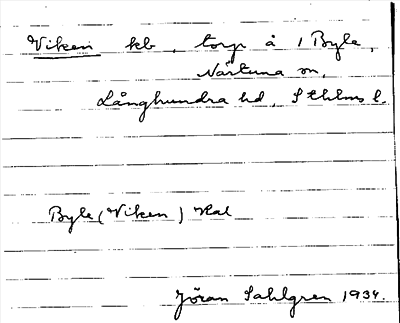 Viken kb, torp å 1 Byle,
Närtuna sn,
Långhundra hd, Sthlms l.
Byle (Viken) Kal
Jöran Sahlgren 1934.